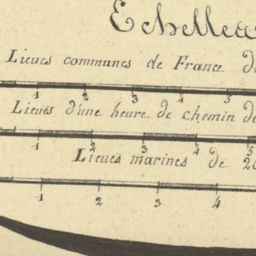 Echelles
Lieues communes de France de
1 2 3 4 5
Lieues d'une heure de chemin de
1 2 3 4 5 6
Lieues marines de 20
1 2 3 4